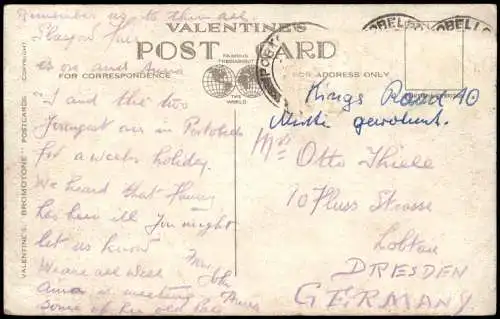 Remember us to them all
VALENTINE'S
POST CARD
FAMOUS THROUGHOUT
THE WORLD
FOR CORRESPONDENCE
FOR ADDRESS ONLY
COPYRIGHT
VALENTINE'S "BROMOTONE" POSTCARDS
PORTOBELLO
Glasgow
is on and
I and the two
youngest are in Portobello
for a weeks holiday.
We heard that
has been ill You might
let us know
We are all well
John
is meeting
some of his old Pals
Kings Road 10
gewohnt.
Mrs Otto Thiele
10 Fluss Strasse
Lobtau
DRESDEN
GERMANY